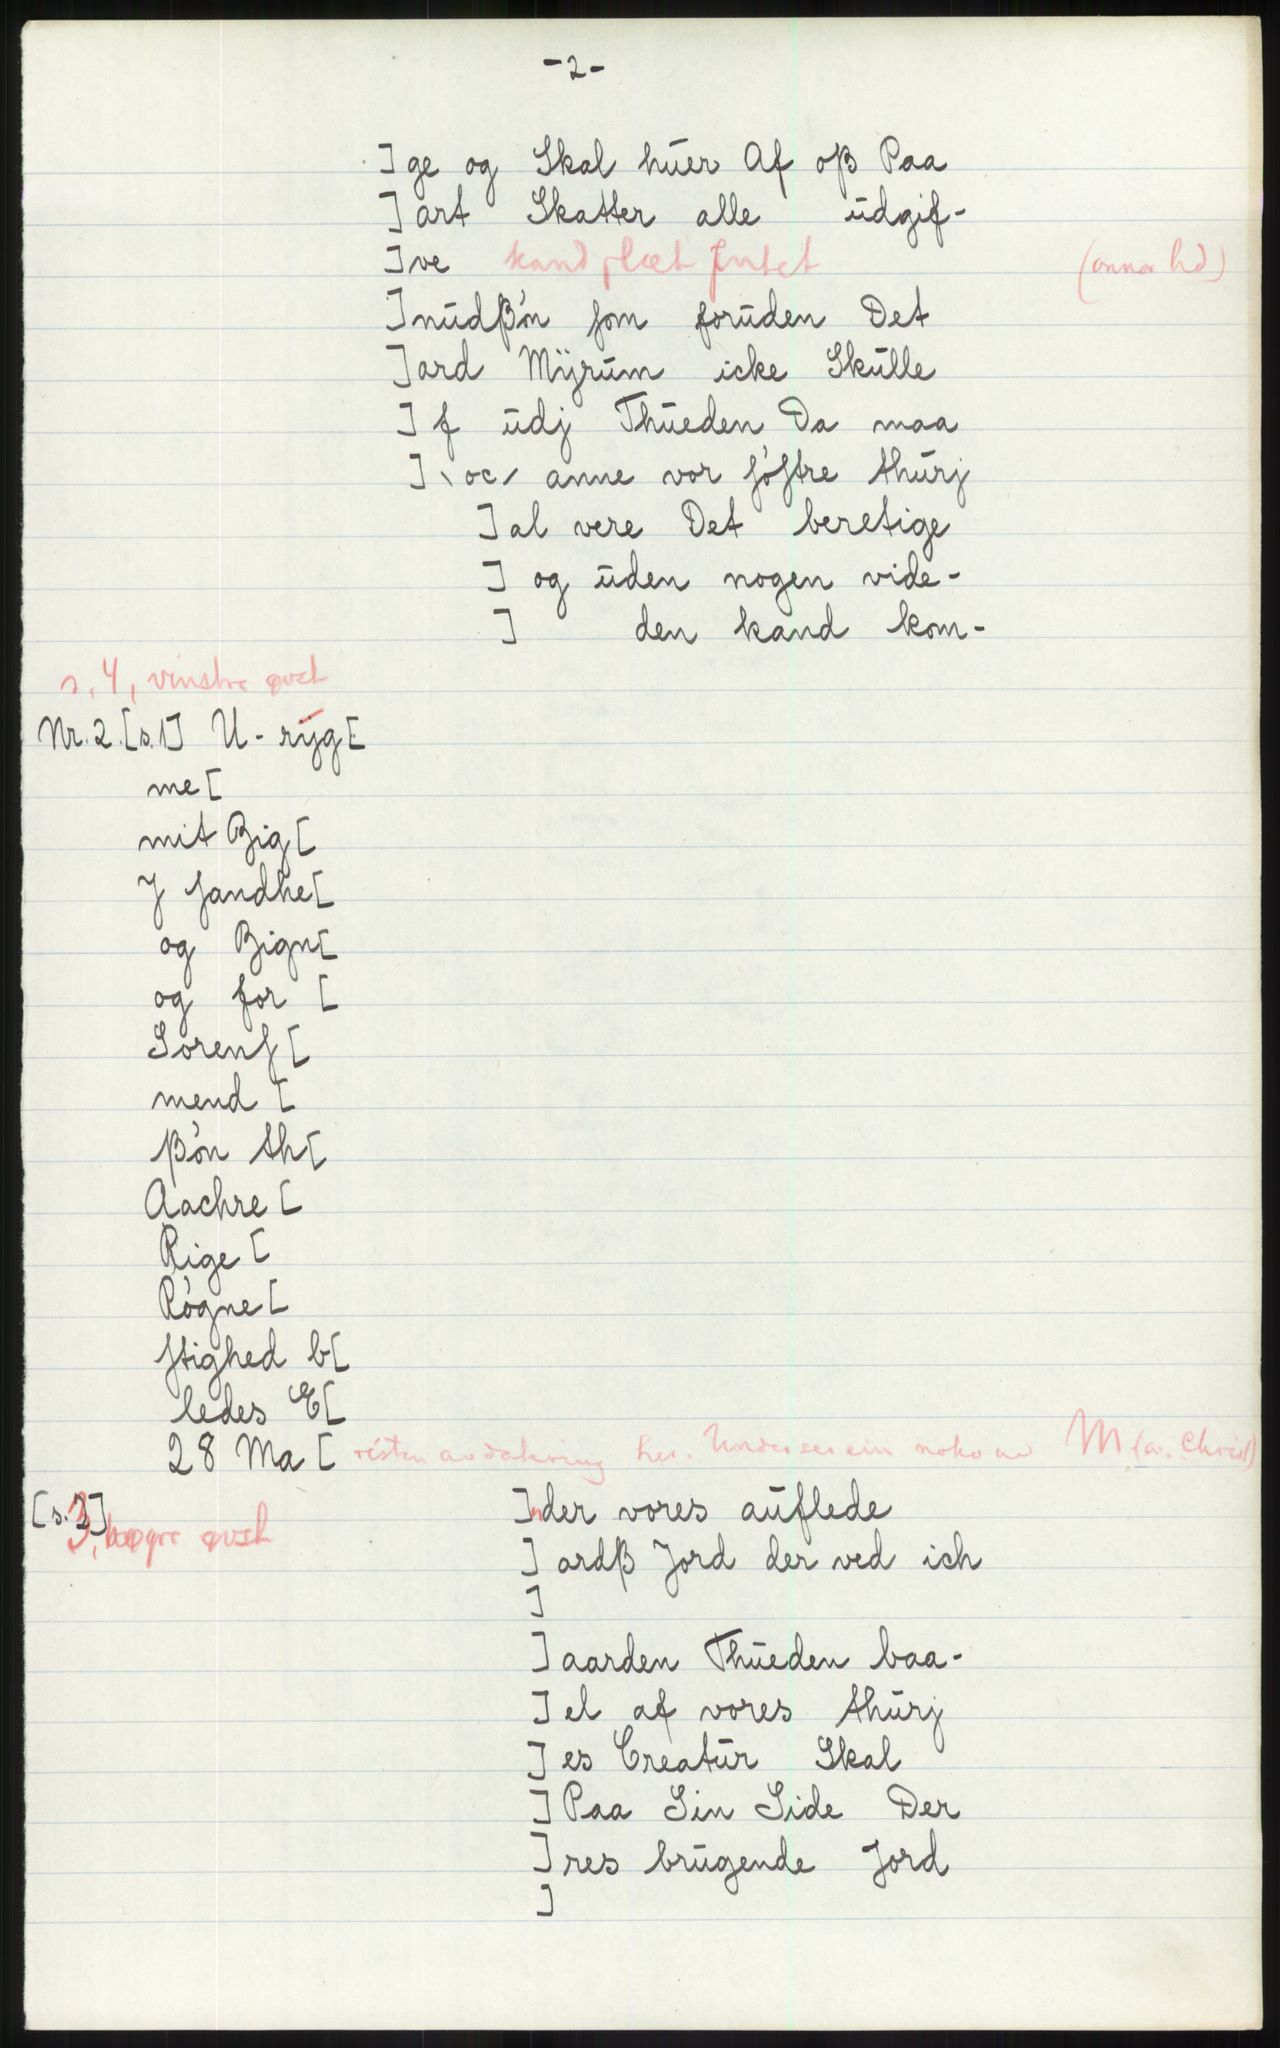 -2-
]ge og Skal hūer Af oß Paa
]art Skatter alle ūdgif-
]ve kand plæt Jntet (annar hd)
]nūdßøn som forūden Det
]ard Mÿrūm icke Skūlle
]f ūdj Thūeden Da maa
]\oc/ anne vor søstre thūrj
]al vere Det beretige
] og ūden nogen vide-
] den kand kom-
s. 4, vinstre øvst
Nr. 2. [s.1] U-rÿg[
me[
mit Big[
J sandhe[
og Bign[
og for [
Sorens[
mend [
ßøn th[
Aachre [
Rige [
Røgne[
stighed b[
ledes E[
28 Ma [ resten av datering her. Under ser ein noko av M (av. Christ)
[s. 3] ]nder vores aūflede
, høgre øvst
]ardß Jord der ved ich
]
]aarden Thūeden baa-
]el af vores thūrj
]es Creatūr Skal
]Paa Sin Side Der
]res brūgende Jord
]